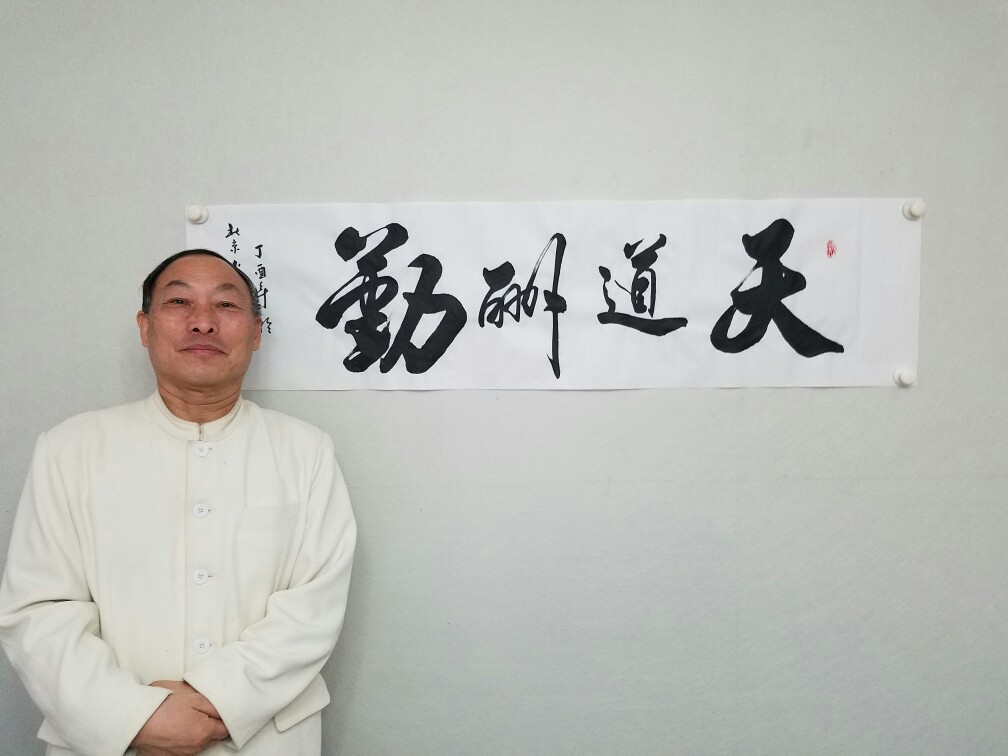 天道酬勤
丁酉年
北京